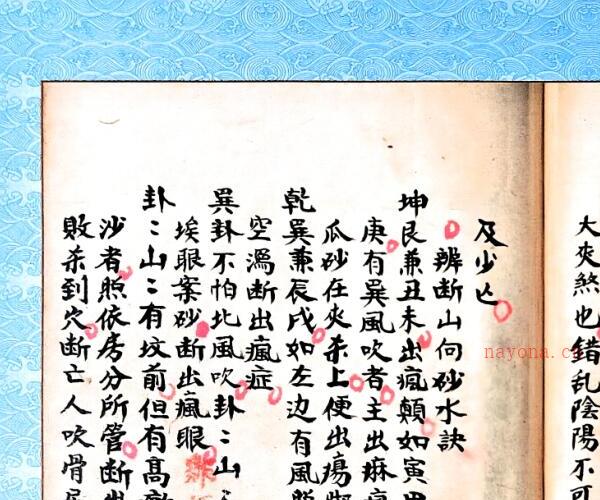 大夾煞也錯乱陰陽不可
及少亡
辨断山向砂水訣
坤艮兼丑未出瘋顛如寅
庚有巽風吹者主出麻
瓜砂在夾杀上便出瘍
乾巽兼辰戌如左边有風
空溤断出瘋症
巽卦不怕北風吹卦〻山〻
埃眼案砂断出瘋眼
卦〻山〻有坟前但有高
沙者照依房分所管断出
敗杀到穴断亡人吹骨
nayona.c